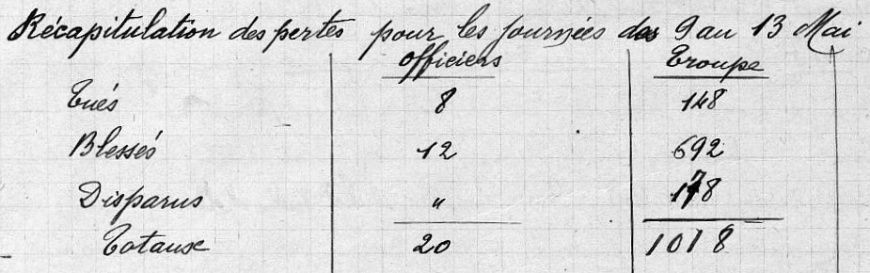 Récapitulation des pertes pour les journées des 9 au 13 Mai
Officiers Troupe
Tués 8 148
Blessés 12 692
Disparus " 178
Totaux 20 1018